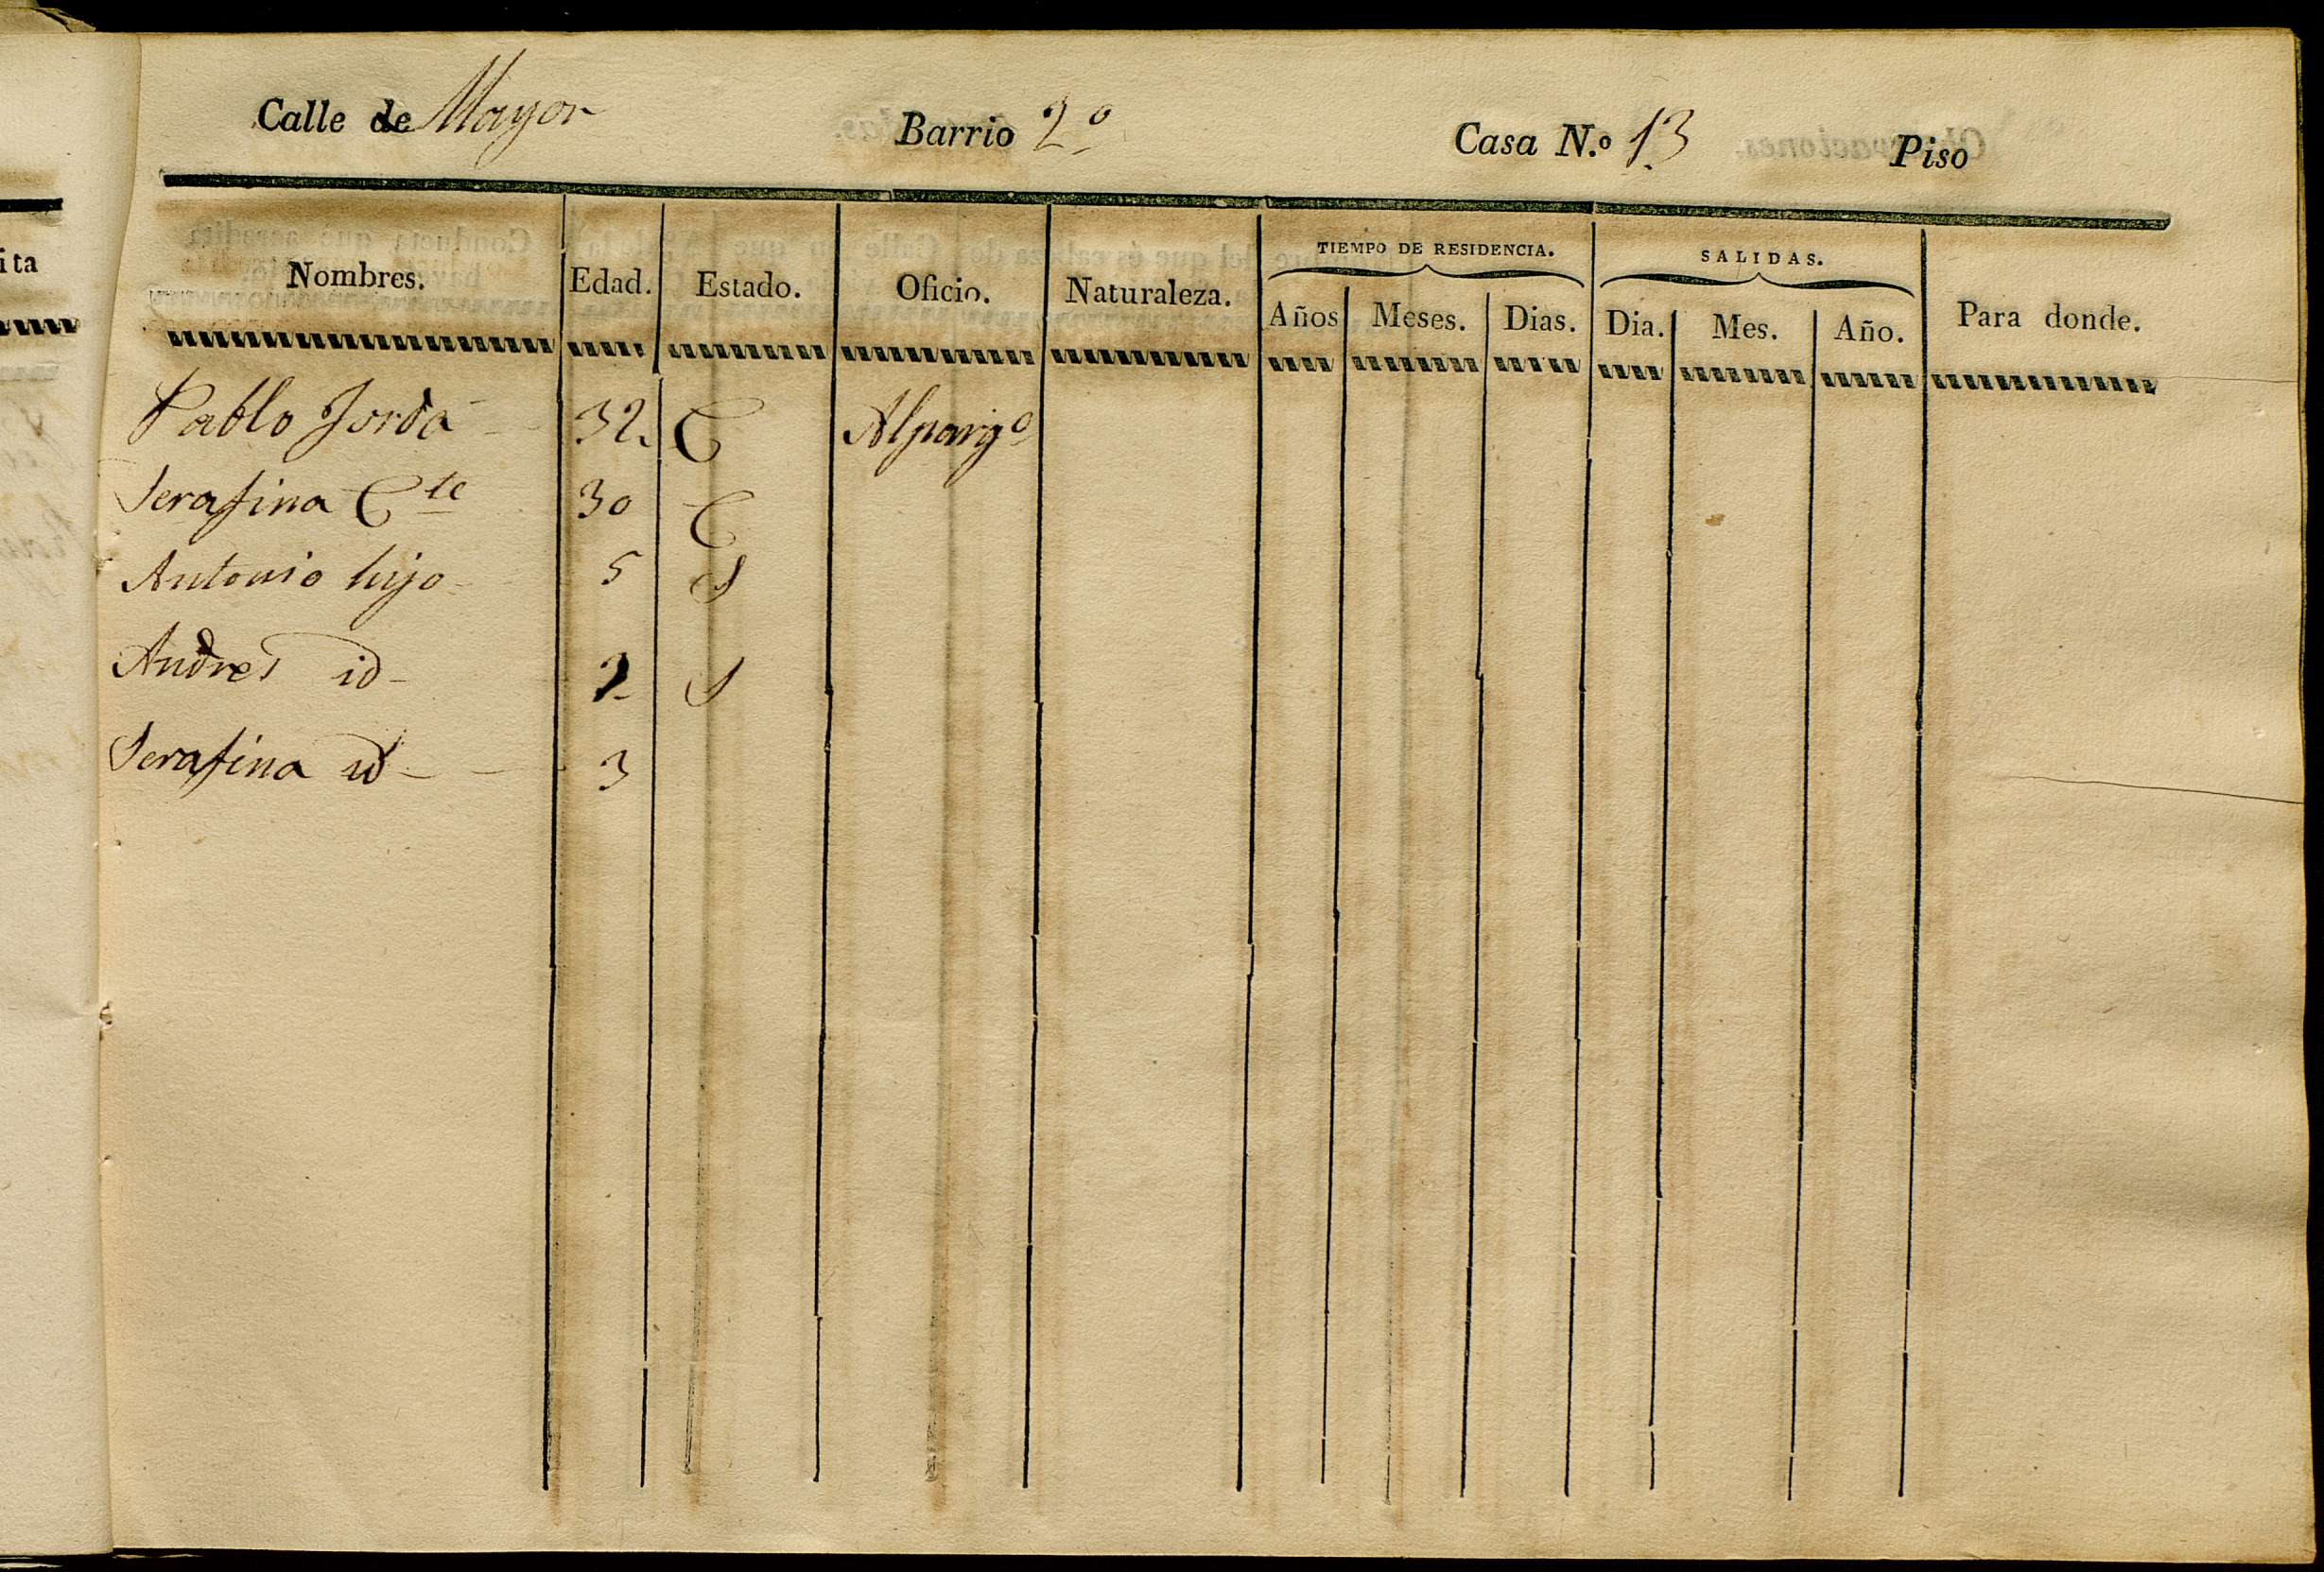 Calle de Mayor Barrio 2º Casa N.º 13 Piso
ita
Nombres. Edad. Estado. Oficio. Naturaleza. TIEMPO DE RESIDENCIA. SALIDAS. Para donde.
Años Meses. Dias. Dia. Mes. Año.
Pablo Jordá 32. C Alpargº
Serafina Cte 30 C
Antonio hijo 5 S
Andres id 2 S
Serafina id 3